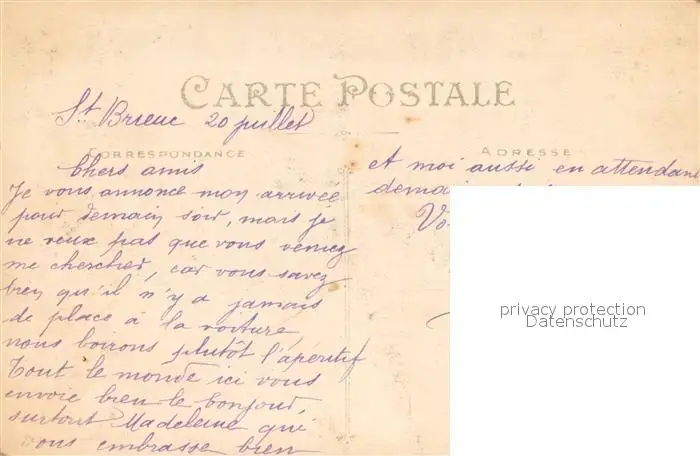 CARTE POSTALE
St Brieuc 20 juillet
CORRESPONDANCE
ADRESSE
Chers amis
Je vous annonce mon arrivée
pour demain soir, mais je
ne veux pas que vous veniez
me chercher, car vous savez
bien qu'il n'y a jamais
de place à la voiture,
nous boirons plutôt l'apéritif
Tout le monde ici vous
envoie bien le bonjour,
surtout Madeleine qui
vous embrasse bien
et moi aussi en attendant
demain
privacy protection
Datenschutz